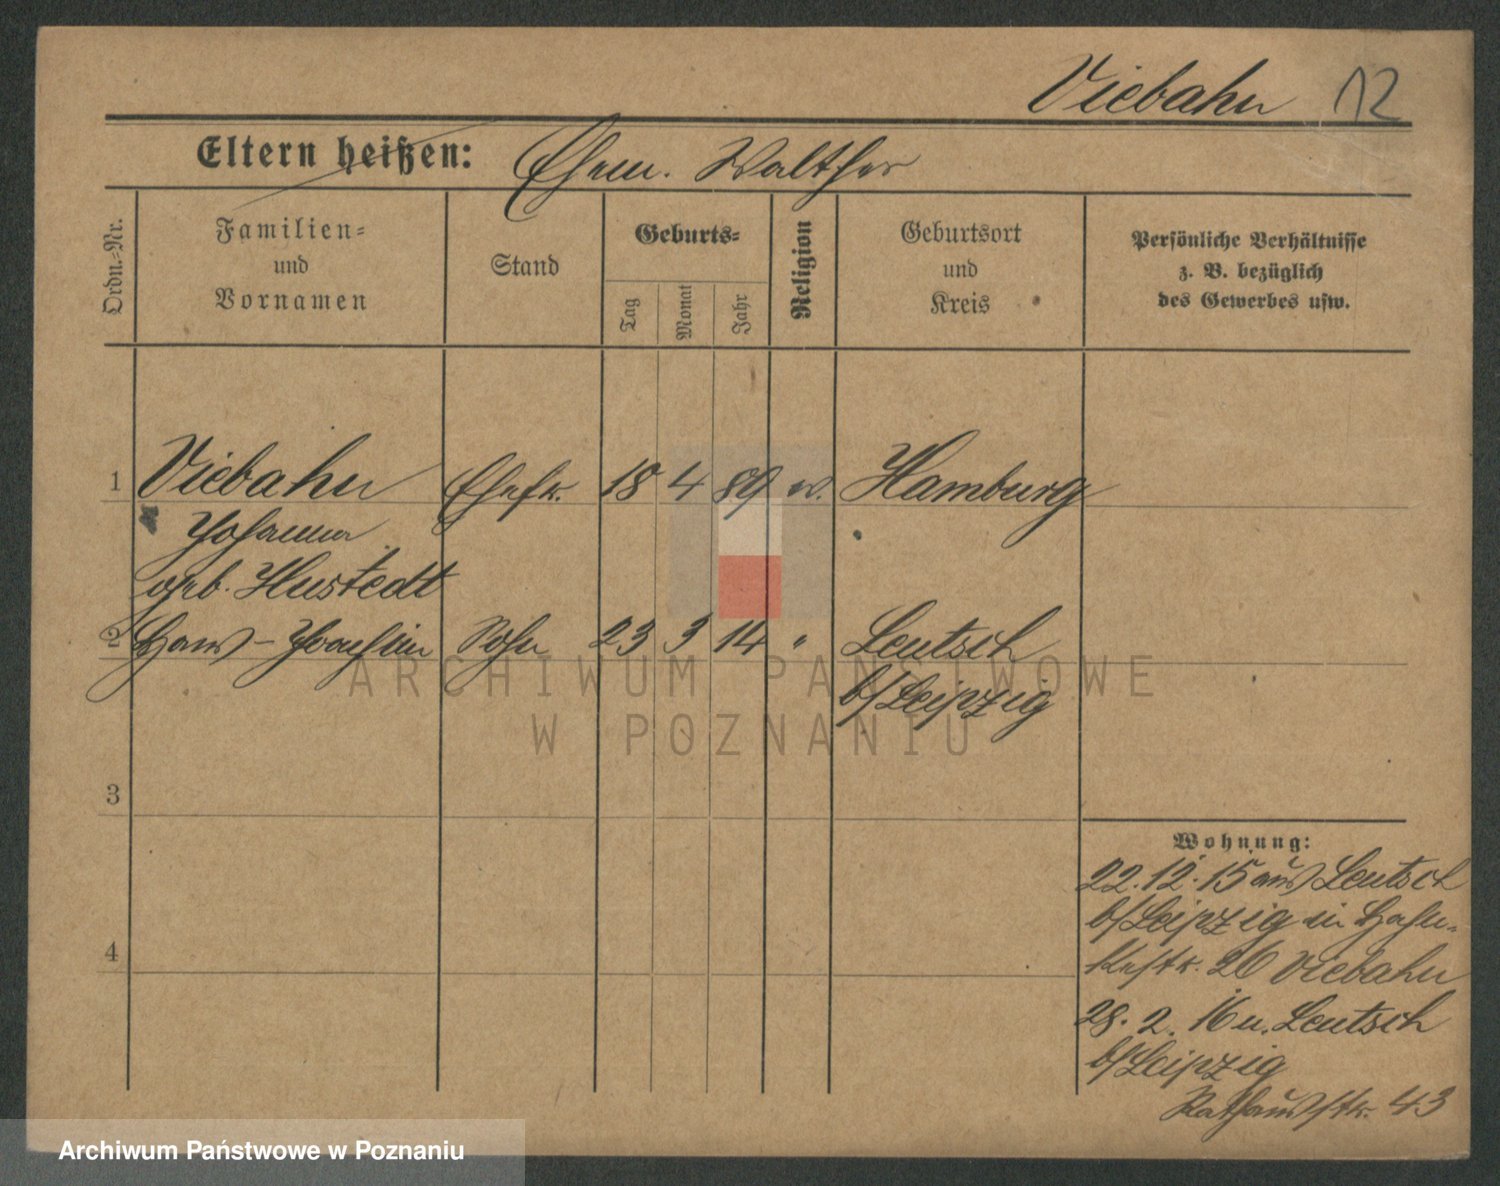 Viebahn 12
Eltern heißen: Ehem. Walther
Ordn.-Nr.
Familien-
und
Vornamen
Stand
Geburts-
Tag
Monat
Jahr
Religion
Geburtsort
und
Kreis
Persönliche Verhältnisse
z. B. bezüglich
des Gewerbes usw.
1 Viebahn Ehefr. 18 4 89 ev. Hamburg
Johanna
geb. Hustedt
2 Hans-Joachim Sohn 23 3 14 " Leutsch
b/Leipzig
3
4
Wohnung:
22.12.15 aus Leutsch
b/Leipzig in
26 Viebahn
28. 2. 16 n. Leutsch
b/Leipzig
Rathausstr. 43
ARCHIWUM PAŃSTWOWE
W POZNANIU
Archiwum Państwowe w Poznaniu